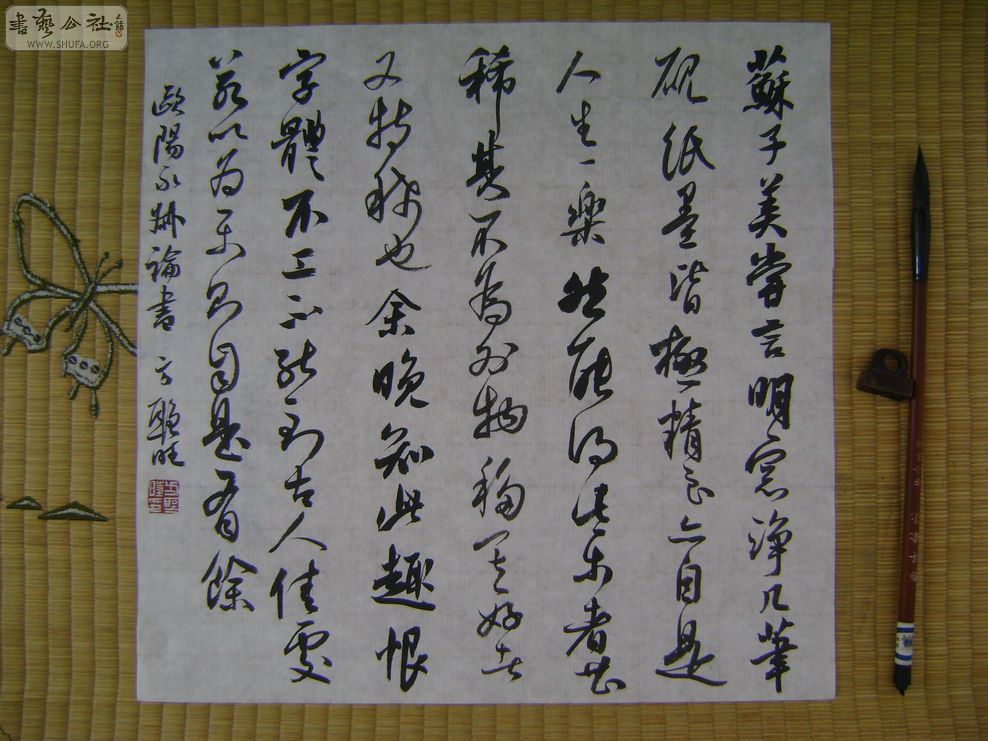 蘇子美嘗言明窓淨几筆
硯紙墨皆極精良亦自是
人生一樂然能得此樂者甚
稀其不為外物移其好者
又特稀也余晚知此趣恨
字體不工不能到古人佳處
若以為樂則自是有餘
歐陽永叔論書 方聰旺
書藝公社
WWW.SHUFA.ORG